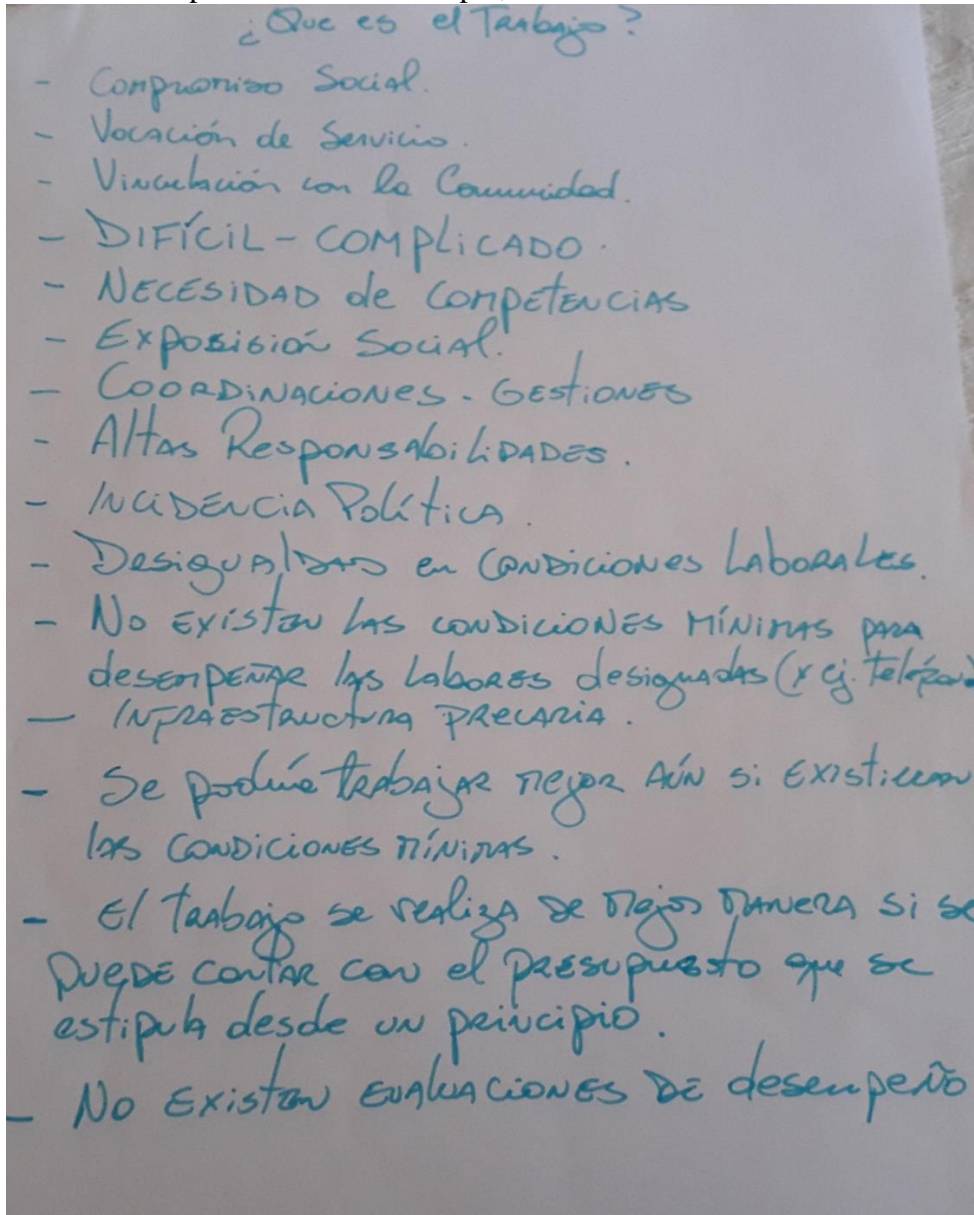 ¿Que es el Trabajo?
- Compromiso Social.
- Vocación de Servicio.
- Vinculación con la Comunidad.
- DIFÍCIL - COMPLICADO.
- NECESIDAD de COMPETENCIAS
- EXPOSISIÓN SOCIAL.
- COORDINACIONES - GESTIONES
- Altas RESPONSABILIDADES.
- INCIDENCIA POLÍTICA.
- DESIGUALDAD en CONDICIONES LABORALES.
- No EXISTEN LAS CONDICIONES MÍNIMAS PARA
desempeñar las labores designadas (x ej. teléfono)
- INFRAESTRUCTURA PRECARIA.
- Se podría trabajar mejor AÚN si EXISTIERAN
las CONDICIONES MÍNIMAS.
- El trabajo se realiza de mejor MANERA si se
PUEDE contar con el PRESUPUESTO que se
estipula desde un principio.
- No EXISTEN EVALUACIONES DE desempeño